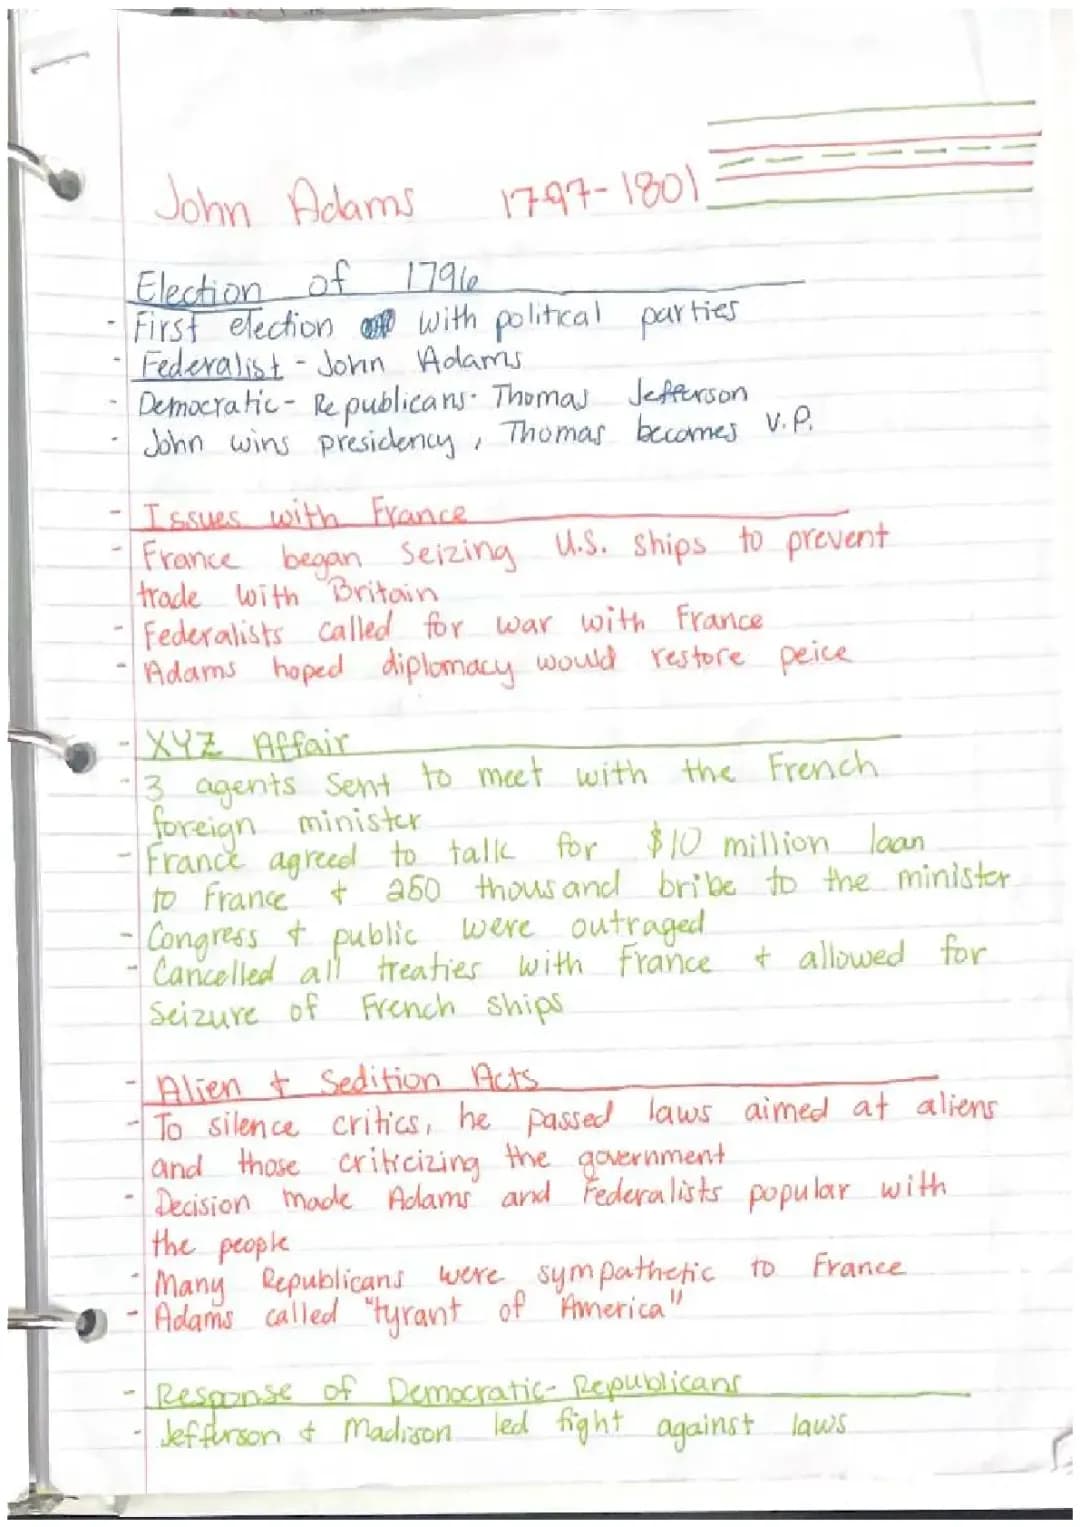 John Adams 1797-1801
Election of 1796
- First election with political parties
- Federalist - John Adams
- Democratic - Republicans - Thomas Jefferson
- John wins presidency, Thomas becomes V.P.
- Issues with France
- France began seizing U.S. ships to prevent
trade with Britain
- Federalists called for war with France
- Adams hoped diplomacy would restore peice
- XYZ Affair
- 3 agents sent to meet with the French
foreign minister
- France agreed to talk for $10 million loan
to France + 250 thousand bribe to the minister
- Congress + public were outraged
- Cancelled all treaties with France + allowed for
Seizure of French ships
- Alien + Sedition Acts
- To silence critics, he passed laws aimed at aliens
and those criticizing the government
- Decision made Adams and Federalists popular with
the people
- Many Republicans were sympathetic to France
- Adams called "tyrant of America"
- Response of Democratic-Republicans
- Jefferson + Madison led fight against laws